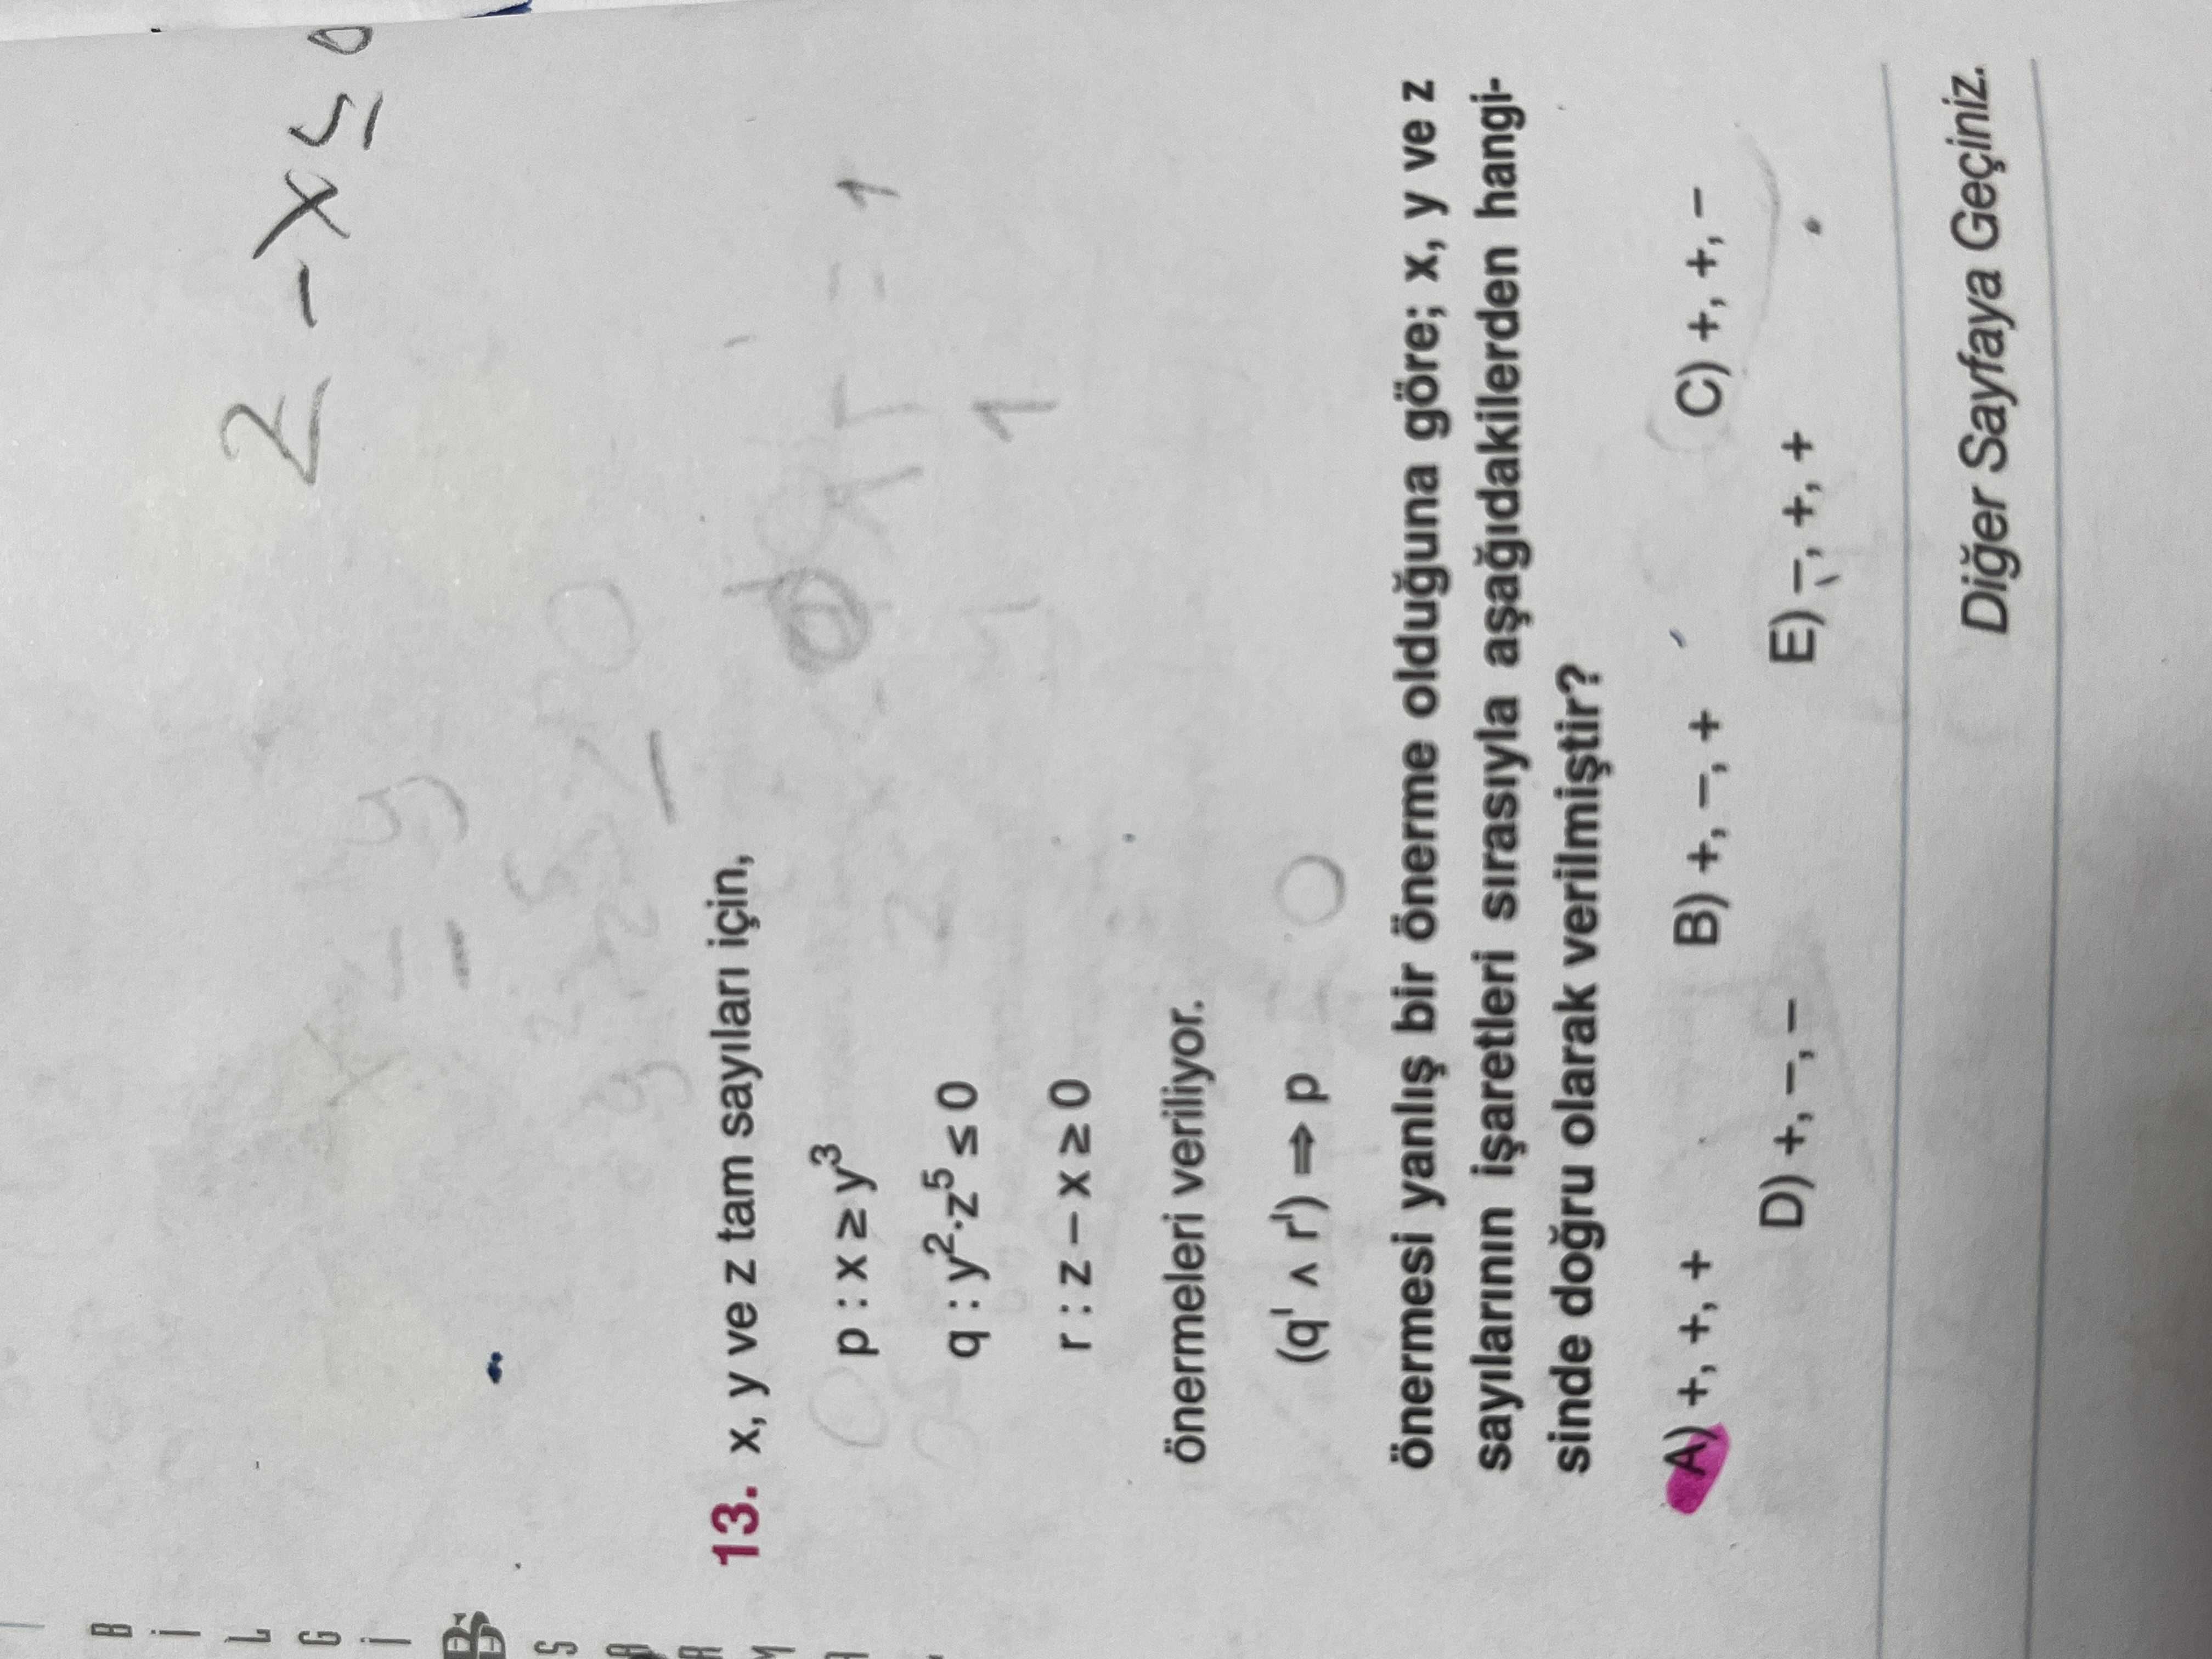 2 - x ≤ 0
13. x, y ve z tam sayıları için,
p : x ≥ y³
q : y²·z⁵ ≤ 0
r : z – x ≥ 0
önermeleri veriliyor.
(q' ∧ r') ⇒ p
0
önermesi yanlış bir önerme olduğuna göre; x, y ve z
sayılarının işaretleri sırasıyla aşağıdakilerden hangi-
sinde doğru olarak verilmiştir?
A) +, +, + B) +, –, + C) +, +, –
D) +, –, – E) –, +, +
Diğer Sayfaya Geçiniz.